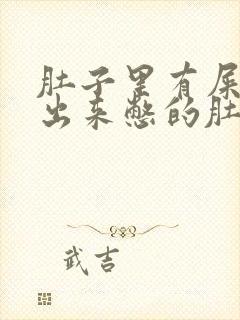 肚子里有屎
出来憋的肚
武吉